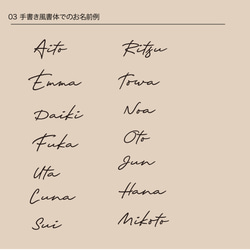 03 手書き風書体でのお名前例
Aito
Ritsu
Emma
Towa
Daiki
Noa
Fuka
Oto
Uta
Jun
Cuna
Hana
Sui
Mikoto